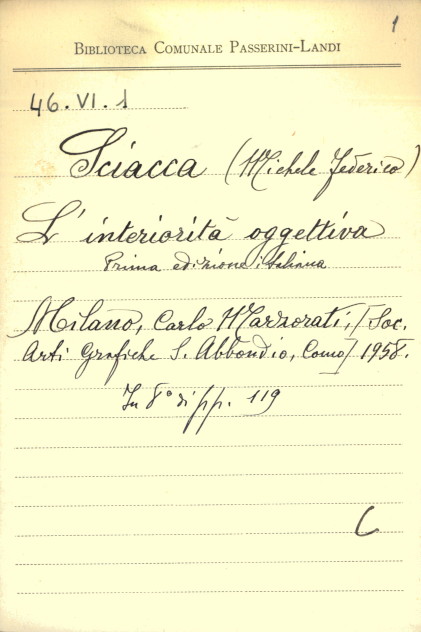 1
BIBLIOTECA COMUNALE PASSERINI-LANDI
46.VI.1
Sciacca (Michele Federico)
L'interiorità oggettiva
Prima edizione italiana
Milano, Carlo Marzorati, [Soc.
Arti Grafiche S. Abbondio, Como] 1958.
In 8° di pp. 119
C